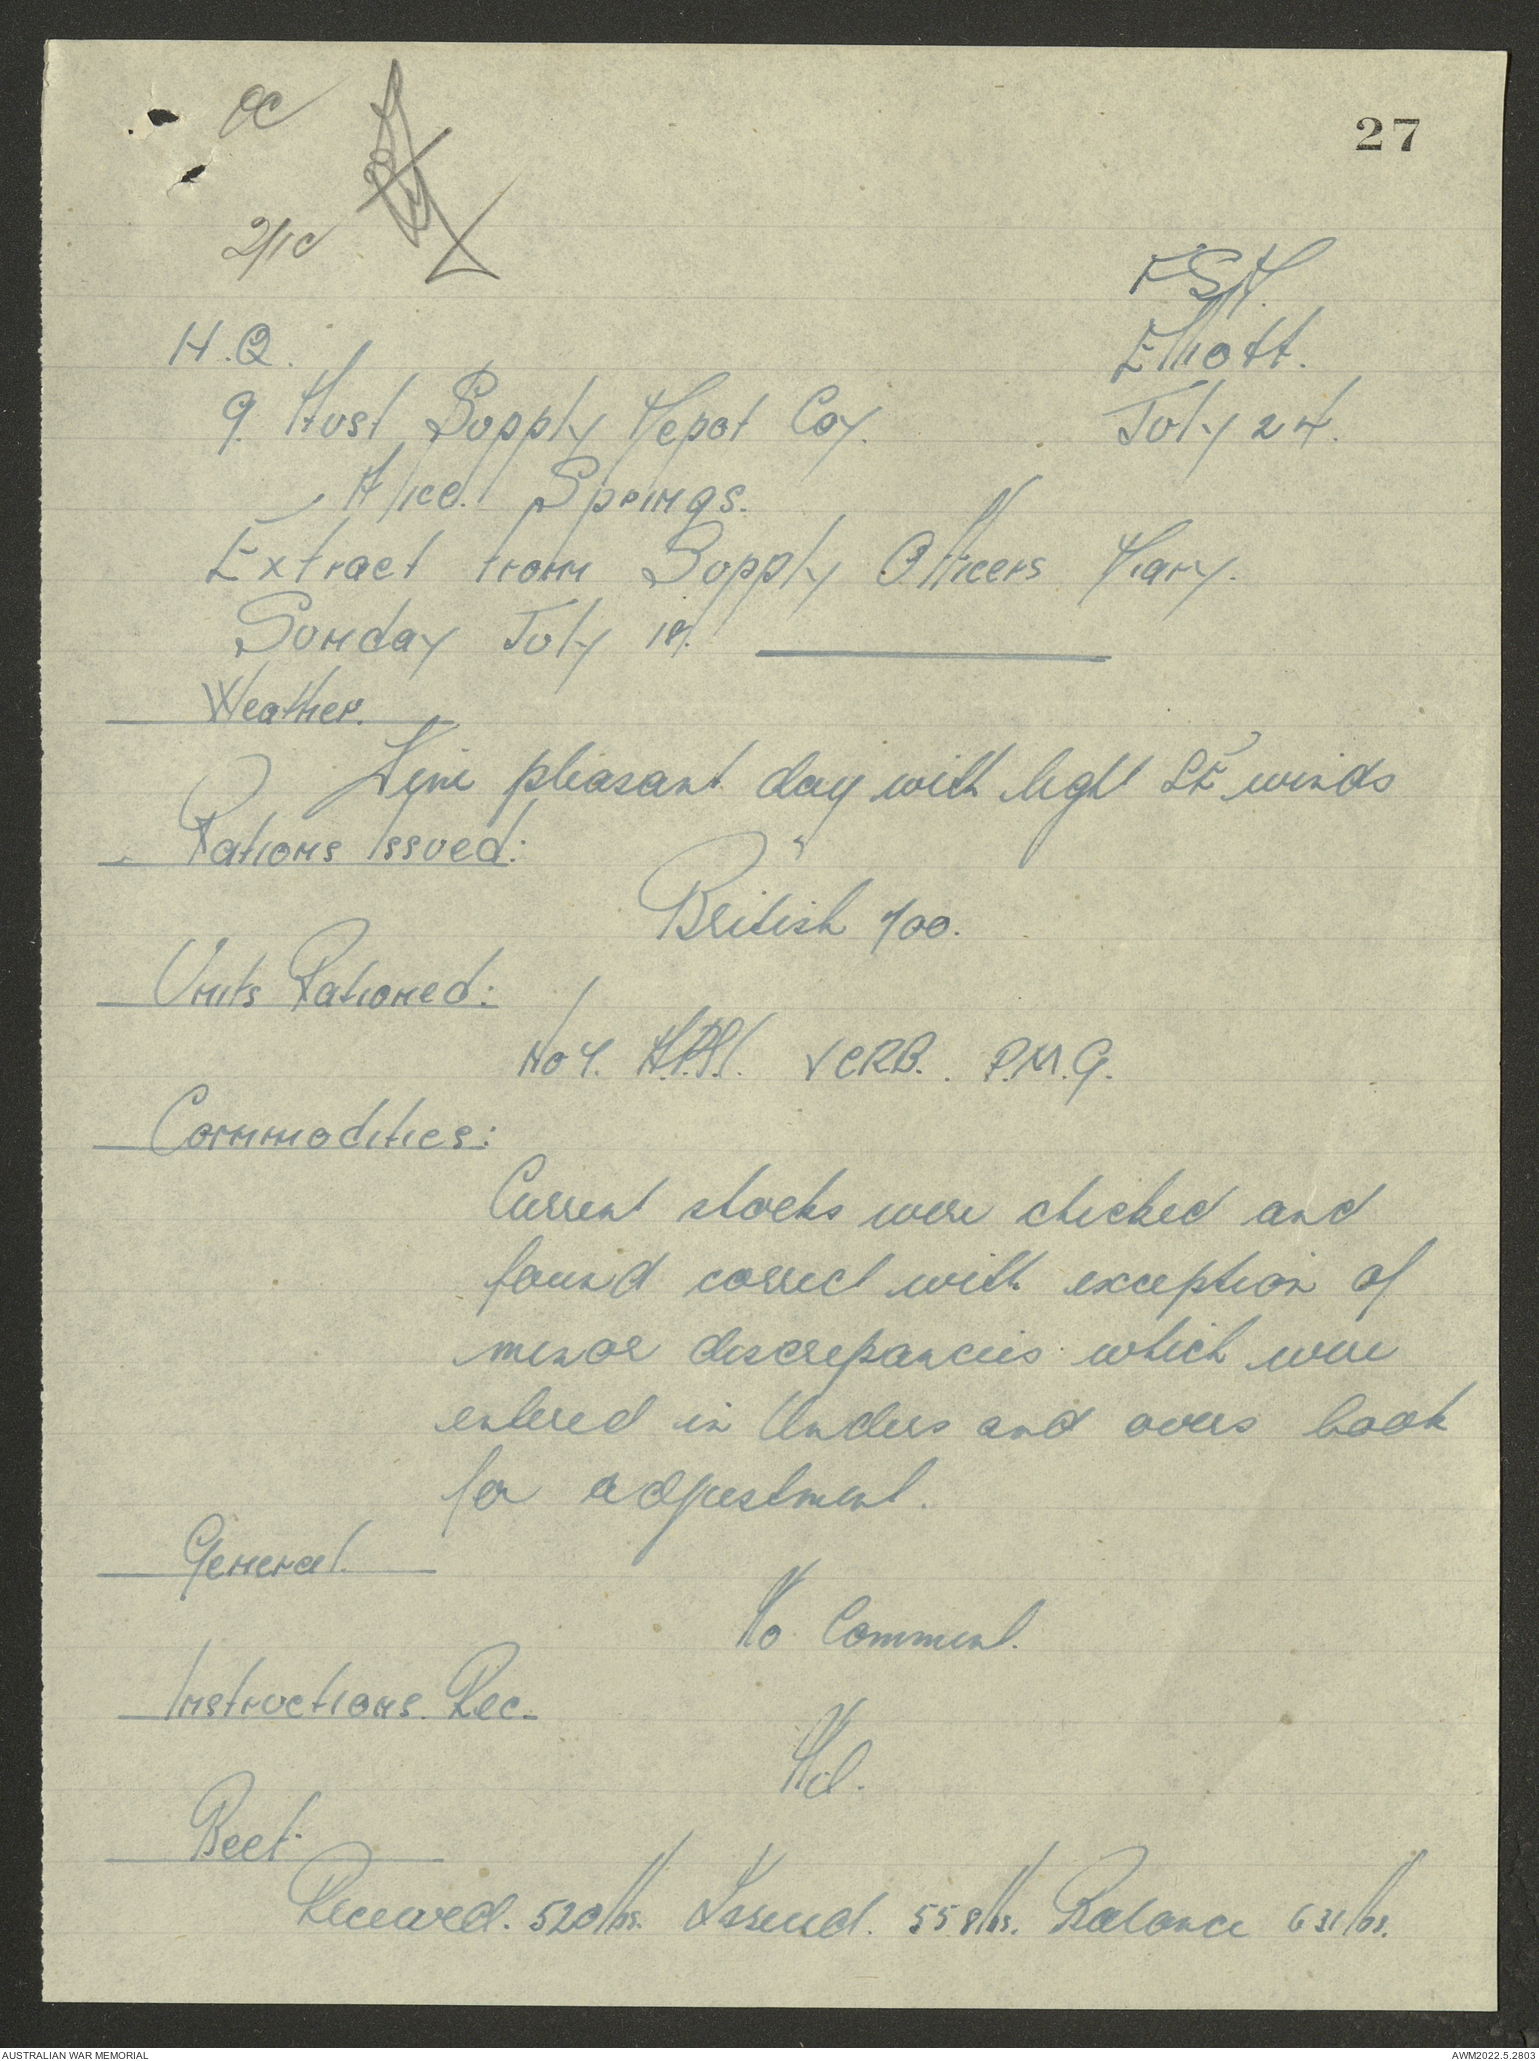 OC
27
2/ic
F.S.D.
Elliott.
July 24.
H.Q.
9 Aust Supply Depot Coy.
Alice Springs.
Extract from Supply Officers Diary.
Sunday July 18.
Weather.
Fine pleasant day with light SE winds
Rations Issued:
British 700.
Units Rationed:
No 7. VCRB. P.M.G.
Commodities:
Current stocks were checked and
found correct with exception of
minor discrepancies which were
entered in Unders and overs book
for adjustment.
General.
No Comment.
Instructions. Rec.
Nil.
Beef
Received. 520 lbs. Issued. 558 lbs. Balance 631 lbs.
AUSTRALIAN WAR MEMORIAL
AWM2022.5.2803